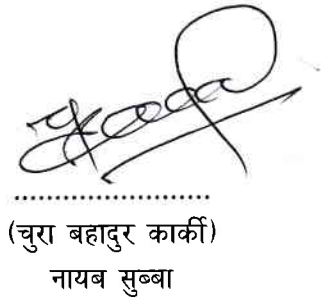 ....................
(चुरा बहादुर कार्की)
नायब सुब्बा